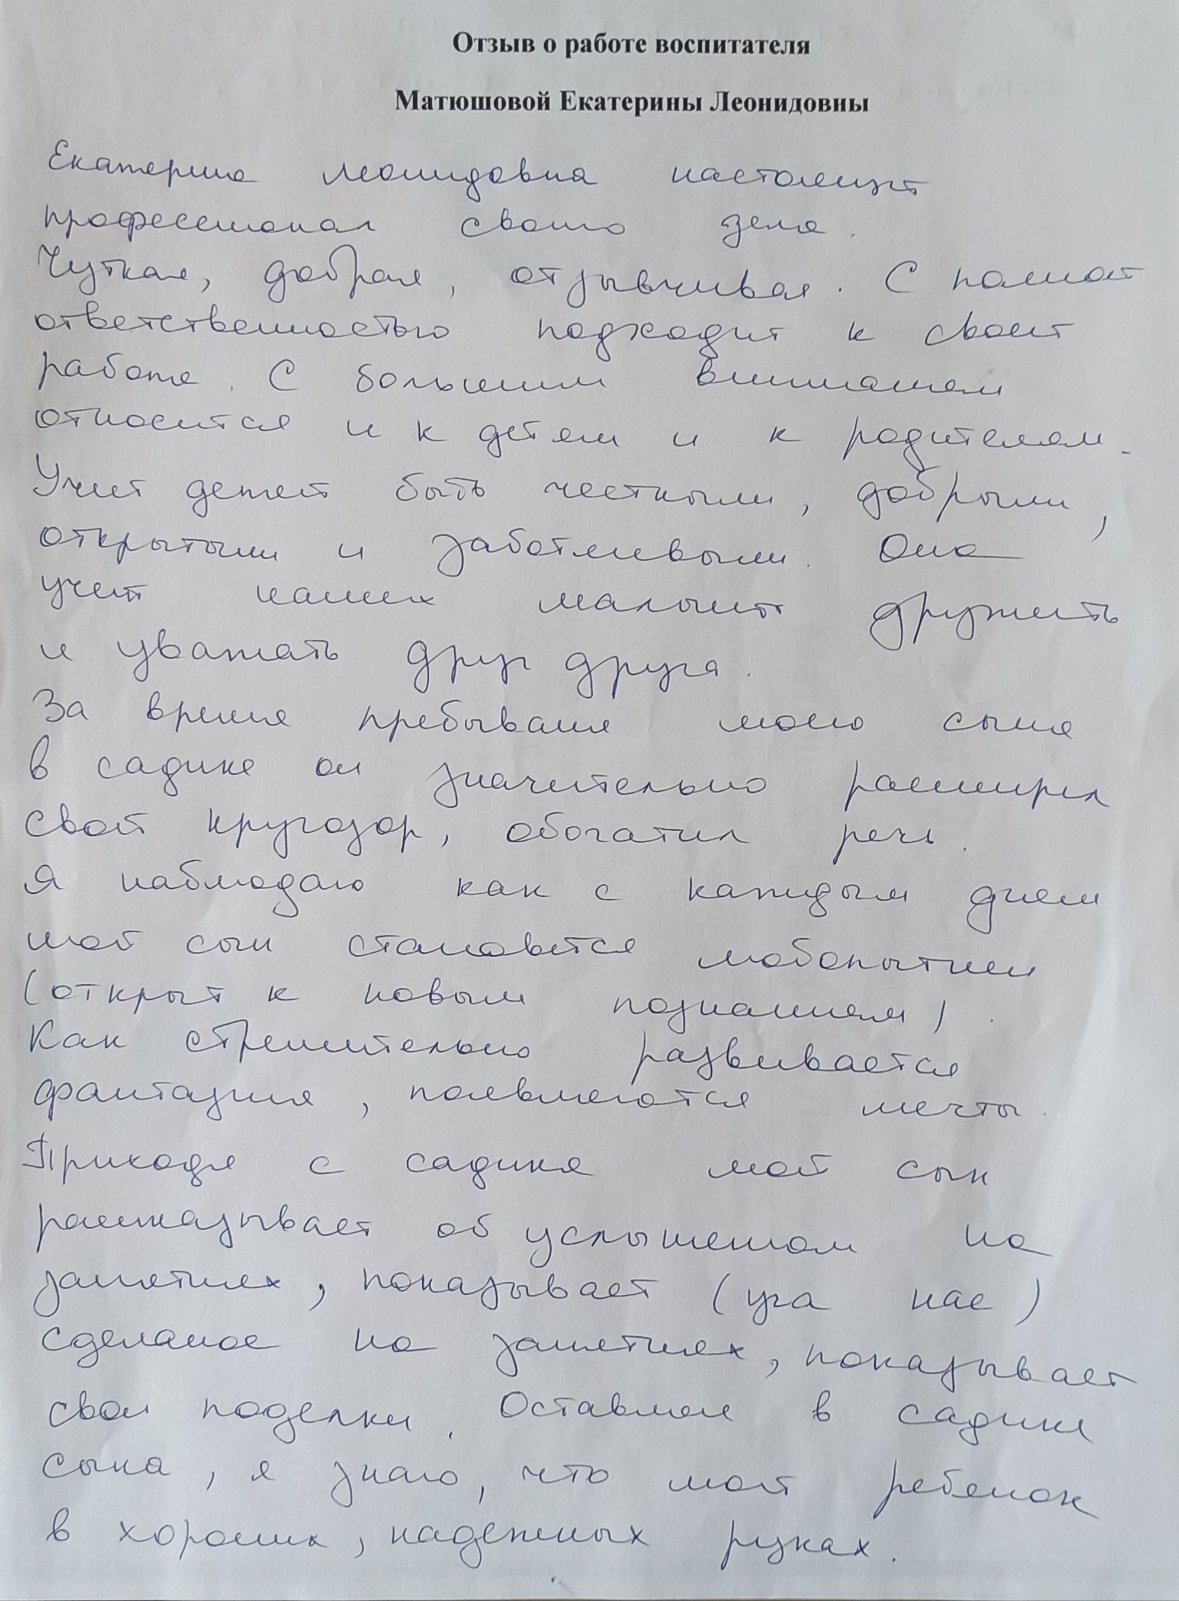 Отзыв о работе воспитателя
Матюшовой Екатерины Леонидовны
Екатерина Леонидовна настоящий
профессионал своего дела.
Чуткая, добрая, отзывчивая. С полной
ответственностью подходит к своей
работе. С большим вниманием
относится и к детям и к родителям.
Учит детей быть честными, добрыми,
открытыми и заботливыми. Она
учит наших малышей дружить
и уважать друг друга.
За время пребывания моего сына
в садике он значительно расширил
свой кругозор, обогатил речь.
Я наблюдаю как с каждым днем
мой сын становится любопытнее
(открыт к новым познаниям).
Как стремительно развивается
фантазия, появляются мечты.
Приходя с садика мой сын
рассказывает об услышенном на
занятиях, показывает (уча нас)
сделаное на занятиях, показывает
свои поделки. Оставляя в садике
сына, я знаю, что мой ребенок
в хороших, надежных руках.